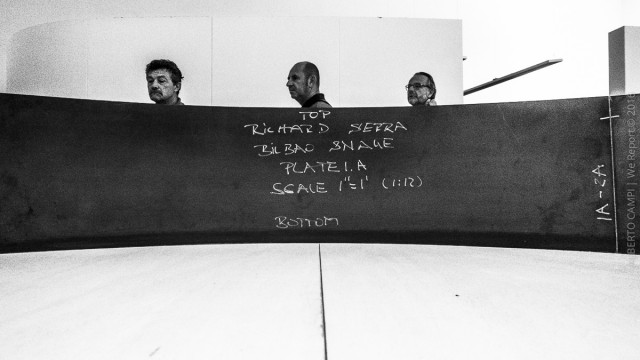 TOP
RICHARD SERRA
BILBAO SNAKE
PLATE 1.A
SCALE 1"=1' (1:12)
BOTTOM
1A-2A
BERTO CAMPI | We Report ©